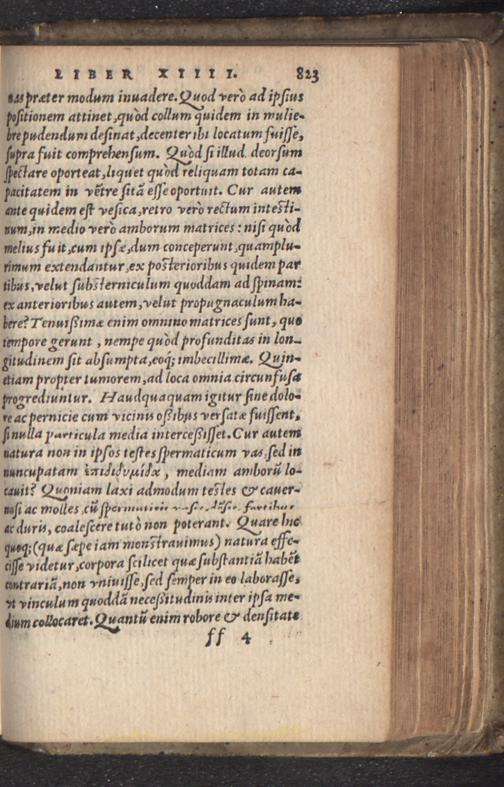 LIBER XIIII. 823
nas præter modum inuadere. Quod verò ad ipsius
positionem attinet, quòd collum quidem in mulie-
bre pudendum desinat, decenter ibi locatum fuisse,
supra fuit comprehensum. Quòd si illud deorsum
spectare oporteat, liquet quòd reliquam totam ca-
pacitatem in vẽtre sitã esse oportuit. Cur autem
ante quidem est vesica, retro verò rectum intesti-
num, in medio verò amborum matrices: nisi quòd
melius fuit, cum ipsæ, dum conceperunt, quamplu-
rimum extendantur, ex posterioribus quidem par
tibus, velut substerniculum quoddam ad spinam:
ex anterioribus autem, velut propugnaculum ha-
bere? Tenuißimæ enim omnino matrices sunt, quo
tempore gerunt, nempe quòd profunditas in lon-
gitudinem sit absumpta, eoq; imbecillimæ. Quin-
etiam propter tumorem, ad loca omnia circunfusæ
progrediuntur. Haudquaquam igitur sine dolo-
re ac pernicie cum vicinis oßibus versatæ fuissent,
si nulla particula media interceßisset. Cur autem
natura non in ipsos testes spermaticum vas, sed in
nuncupatam ἐπιδιδυμίδα, mediam amborũ lo-
cauit? Quoniam laxi admodum testes & cauer-
nosi ac molles, cũ spermaticis
ac duris, coalescere tutò non poterant. Quare hic
quoq; (quæ sæpe iam monstrauimus) natura effe-
cisse videtur, corpora scilicet quæ substantiã habẽt
contrariã, non vniuisse, sed semper in eo laborasse,
vt vinculum quoddã neceßitudinis inter ipsa me-
dium collocaret. Quantũ enim robore & densitate
ff 4